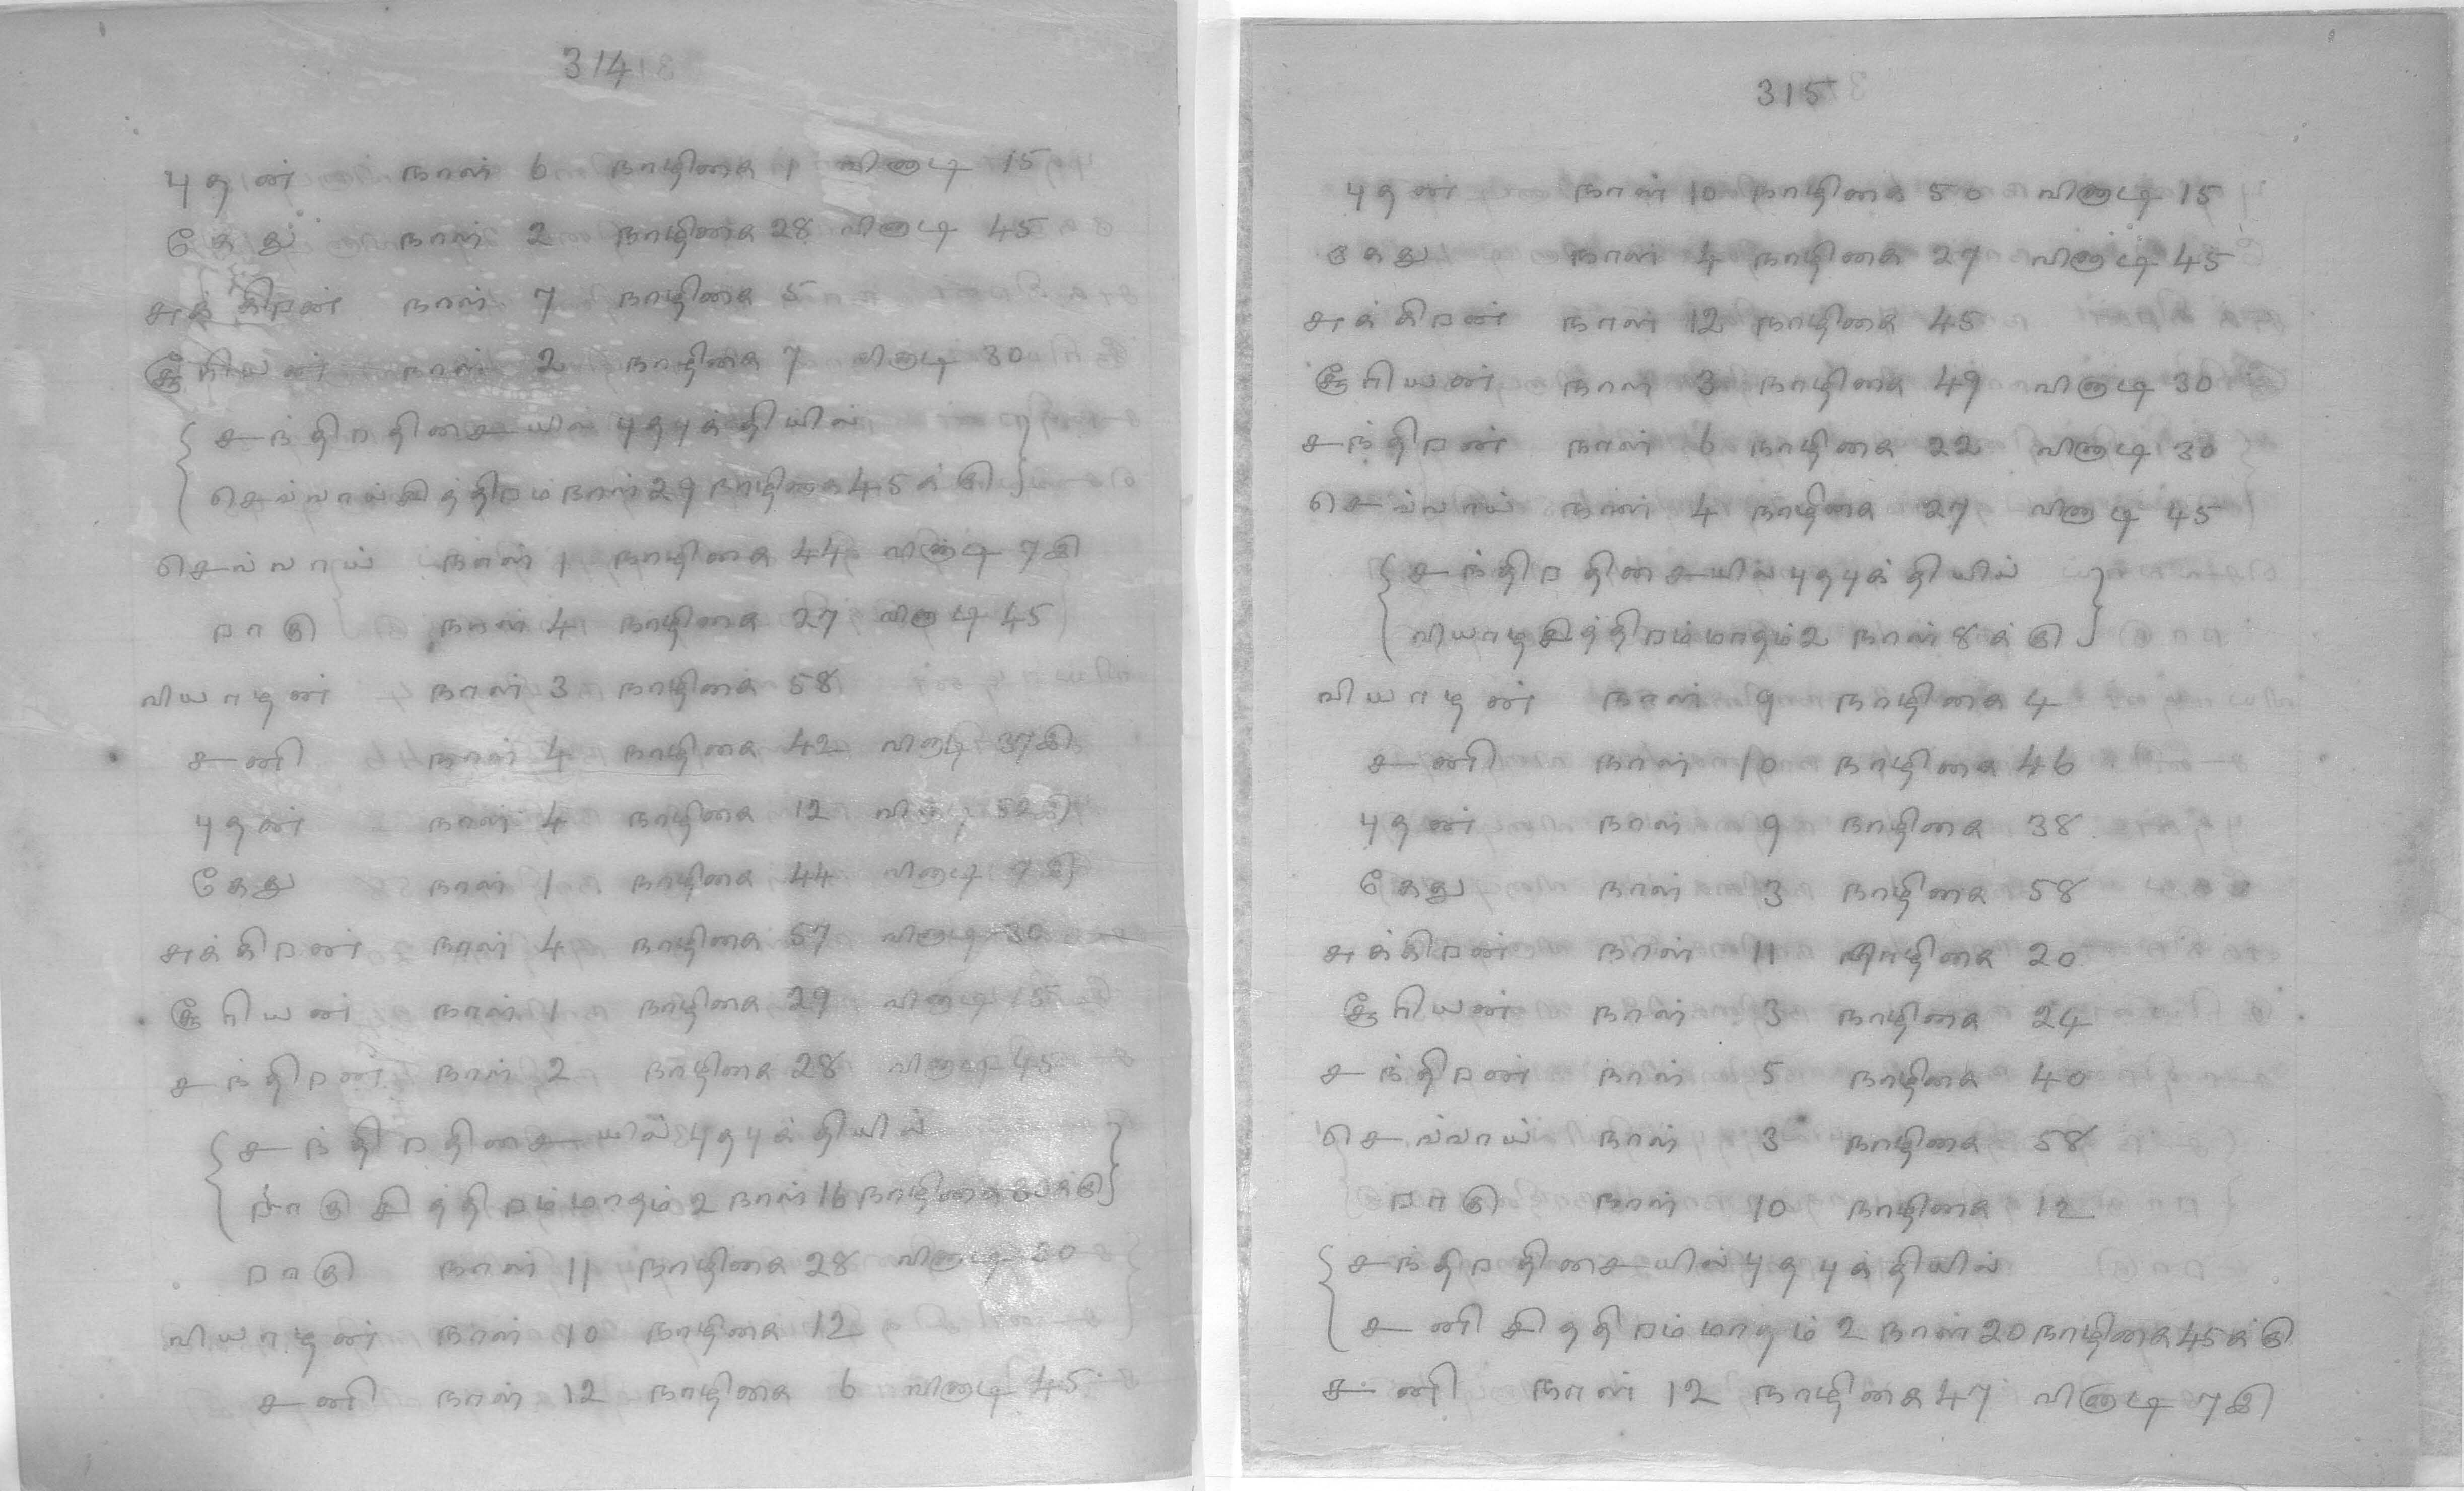 314
புதன் நாள் 6 நாழிகை 1 விநாடி 15
கேது நாள் 2 நாழிகை 28 விநாடி 45
சுக்கிறன் நாள் 7 நாழிகை 5
சூரியன் நாள் 2 நாழிகை 7 விநாடி 30
{ சந்திறதிசையில் புதபுக்தியில்
செவ்வாய்சித்திறம் நாள் 29 நாழிகை 45க்கு }
செவ்வாய் நாள் 1 நாழிகை 44 விநாடி 7இ
றாகு நாள் 4 நாழிகை 27 விநாடி 45
வியாழன் நாள் 3 நாழிகை 58
சனி நாள் 4 நாழிகை 42 விநாடி 37இ
புதன் நாள் 4 நாழிகை 12 விநாடி 52இ
கேது நாள் 1 நாழிகை 44 விநாடி 7இ
சுக்கிறன் நாள் 4 நாழிகை 57 விநாடி 30
சூரியன் நாள் 1 நாழிகை 29 விநாடி 15
சந்திறன் நாள் 2 நாழிகை 28 விநாடி 45
{ சந்திறதிசையில் புதபுக்தியில்
றாகு சித்திறம் மாதம் 2 நாள் 16 நாழிகை 30க்கு }
றாகு நாள் 11 நாழிகை 28 விநாடி 30
வியாழன் நாள் 10 நாழிகை 12
சனி நாள் 12 நாழிகை 6 விநாடி 45
315
புதன் நாள் 10 நாழிகை 50 விநாடி 15
கேது நாள் 4 நாழிகை 27 விநாடி 45
சுக்கிறன் நாள் 12 நாழிகை 45
சூரியன் நாள் 3 நாழிகை 49 விநாடி 30
சந்திறன் நாள் 6 நாழிகை 22 விநாடி 30
செவ்வாய் நாள் 4 நாழிகை 27 விநாடி 45
{ சந்திறதிசையில் புதபுக்தியில்
வியாழசித்திறம் மாதம் 2 நாள் 8க்கு }
வியாழன் நாள் 9 நாழிகை 4
சனி நாள் 10 நாழிகை 46
புதன் நாள் 9 நாழிகை 38
கேது நாள் 3 நாழிகை 58
சுக்கிறன் நாள் 11 நாழிகை 20
சூரியன் நாள் 3 நாழிகை 24
சந்திறன் நாள் 5 நாழிகை 40
செவ்வாய் நாள் 3 நாழிகை 58
றாகு நாள் 10 நாழிகை 12
{ சந்திறதிசையில் புதபுக்தியில்
சனி சித்திறம் மாதம் 2 நாள் 20 நாழிகை 45க்கு
சனி நாள் 12 நாழிகை 47 விநாடி 7இ